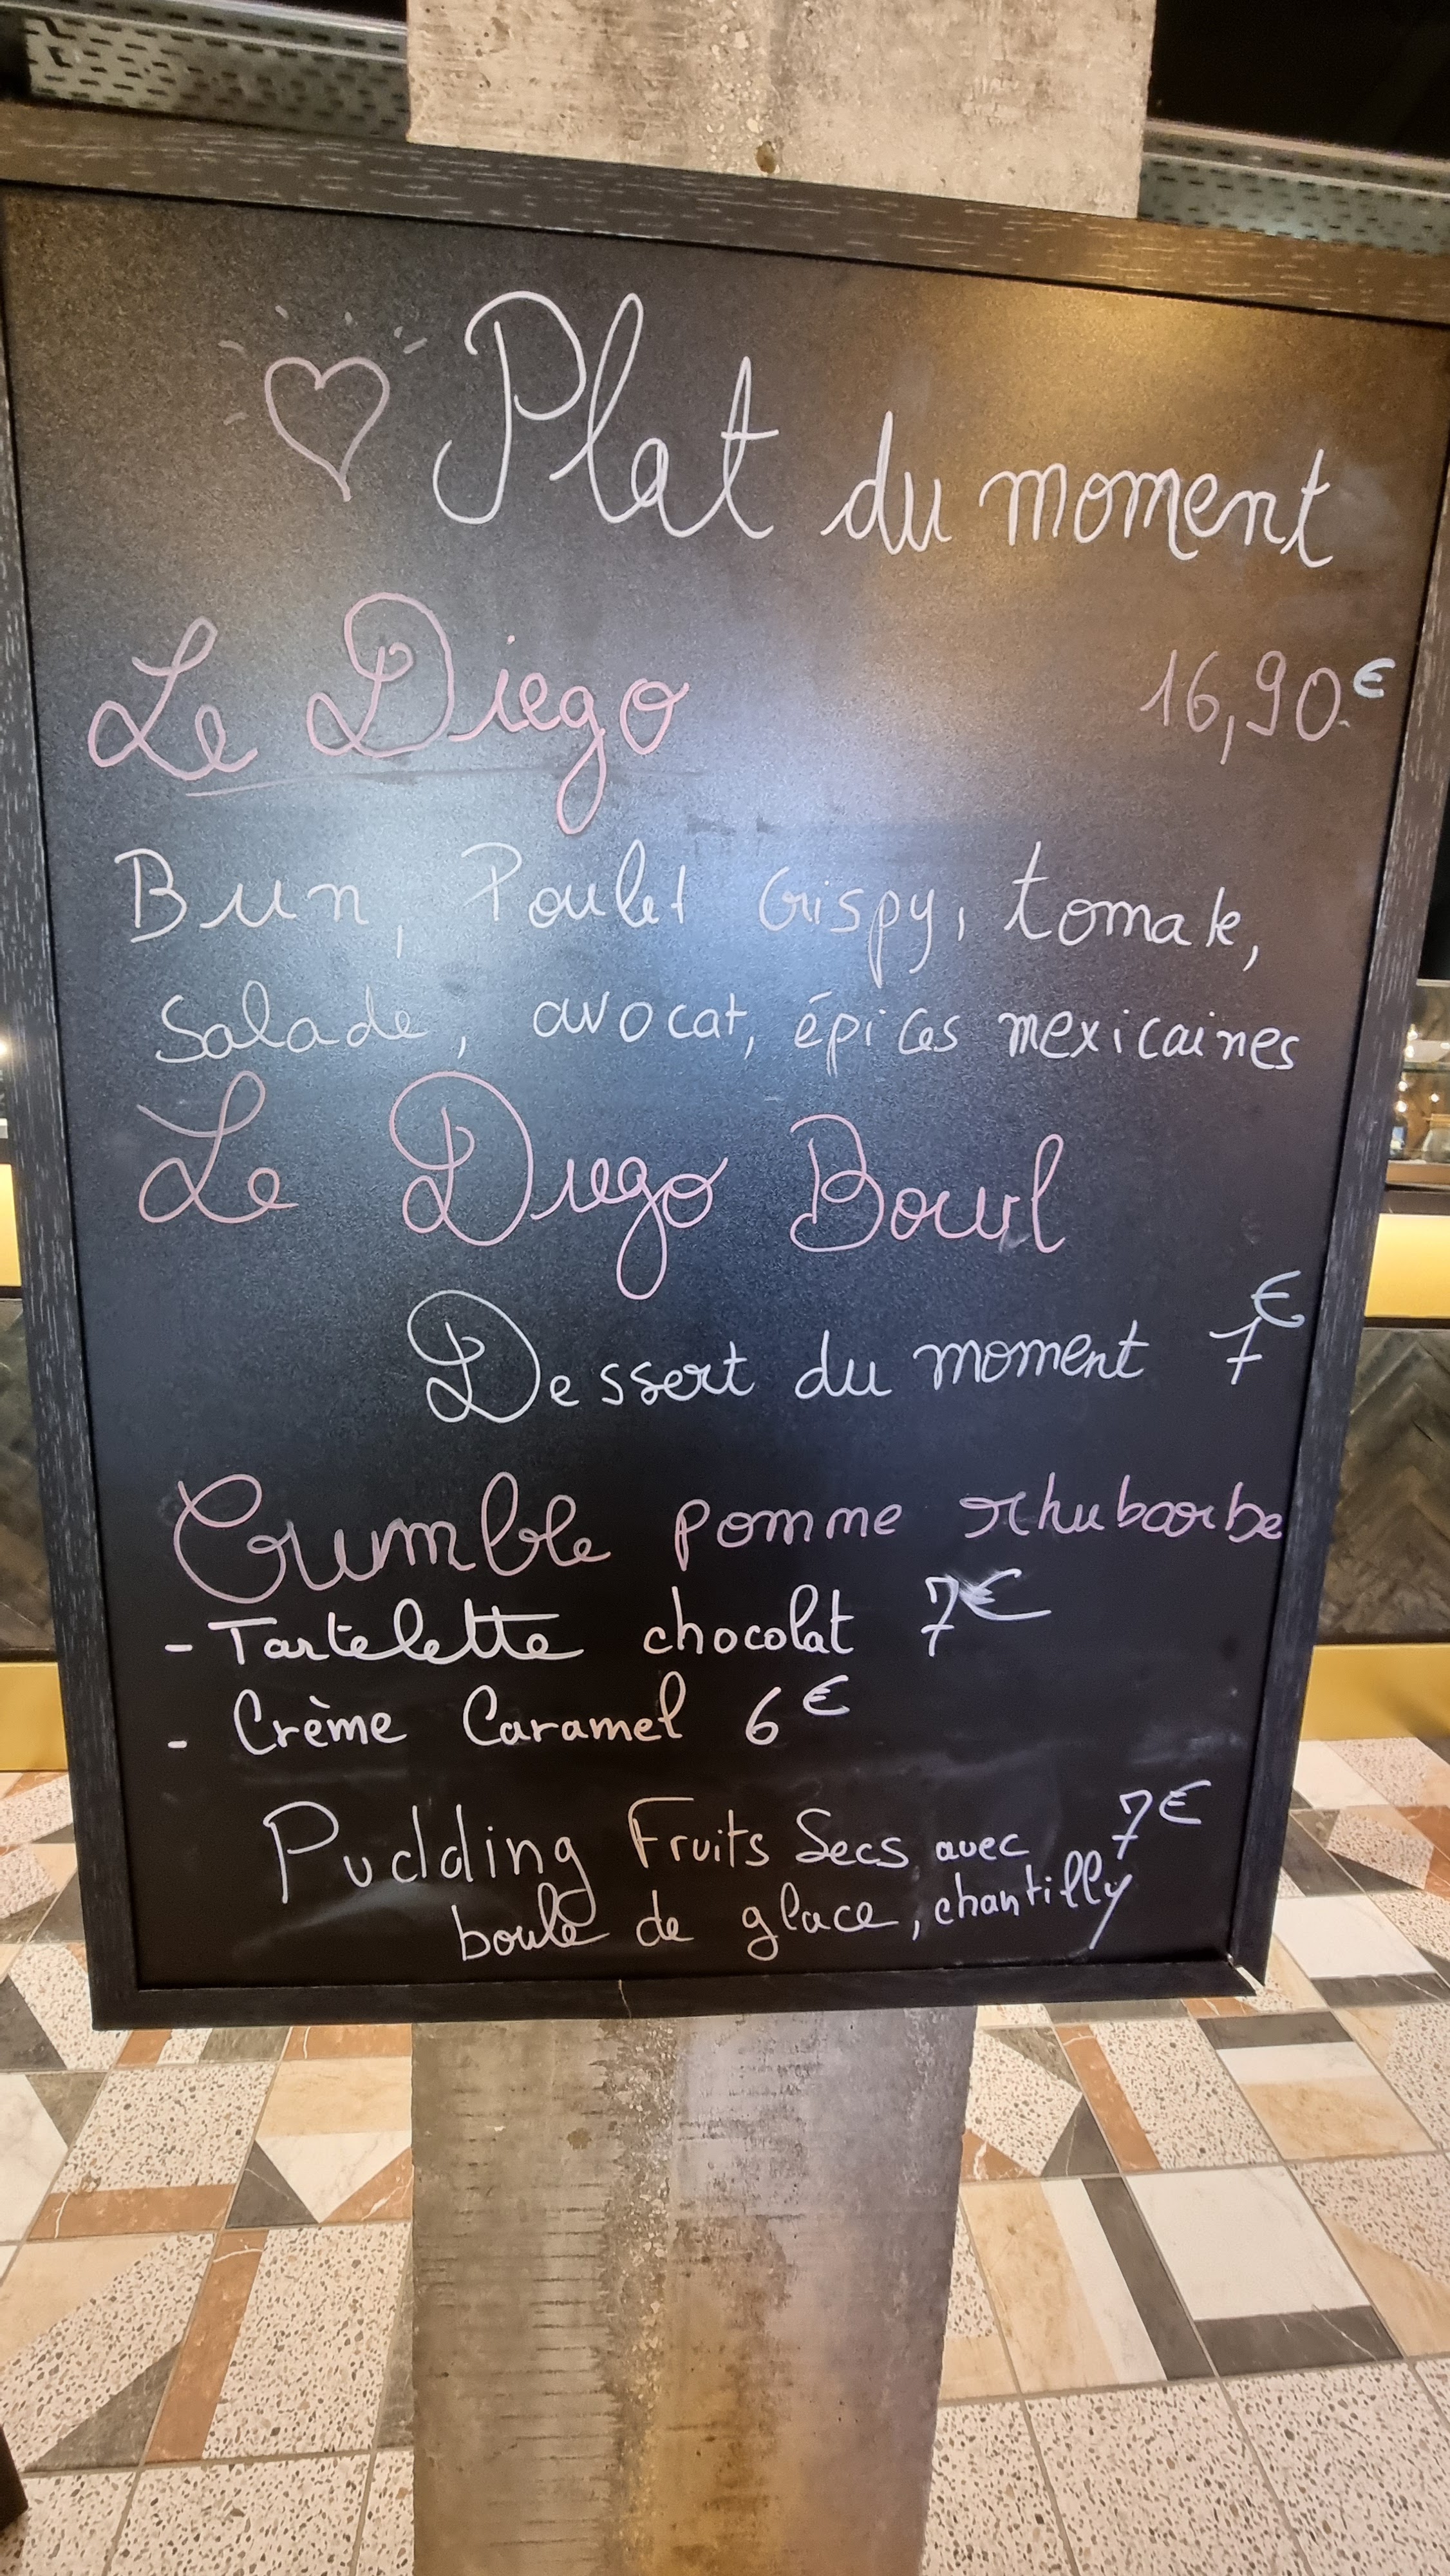 Plat du moment
Le Diego 16,90€
Bun, Poulet Crispy, tomate,
Salade, avocat, épices mexicaines
Le Diego Bowl
Dessert du moment 7€
Crumble pomme rhubarbe
- Tartelette chocolat 7€
- Crème Caramel 6€
Pudding Fruits Secs avec 7€
boule de glace, chantilly